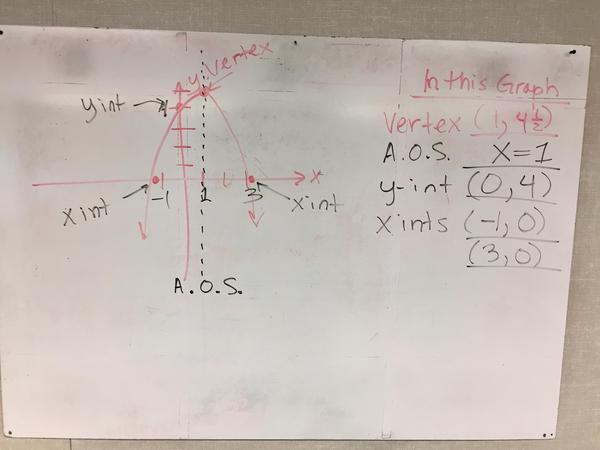 y Vertex
y int
4
x
-1
1
3
x int
x int
A.O.S.
In this Graph
Vertex (1, 4½)
A.O.S. X=1
y-int (0, 4)
x ints (-1, 0)
(3, 0)